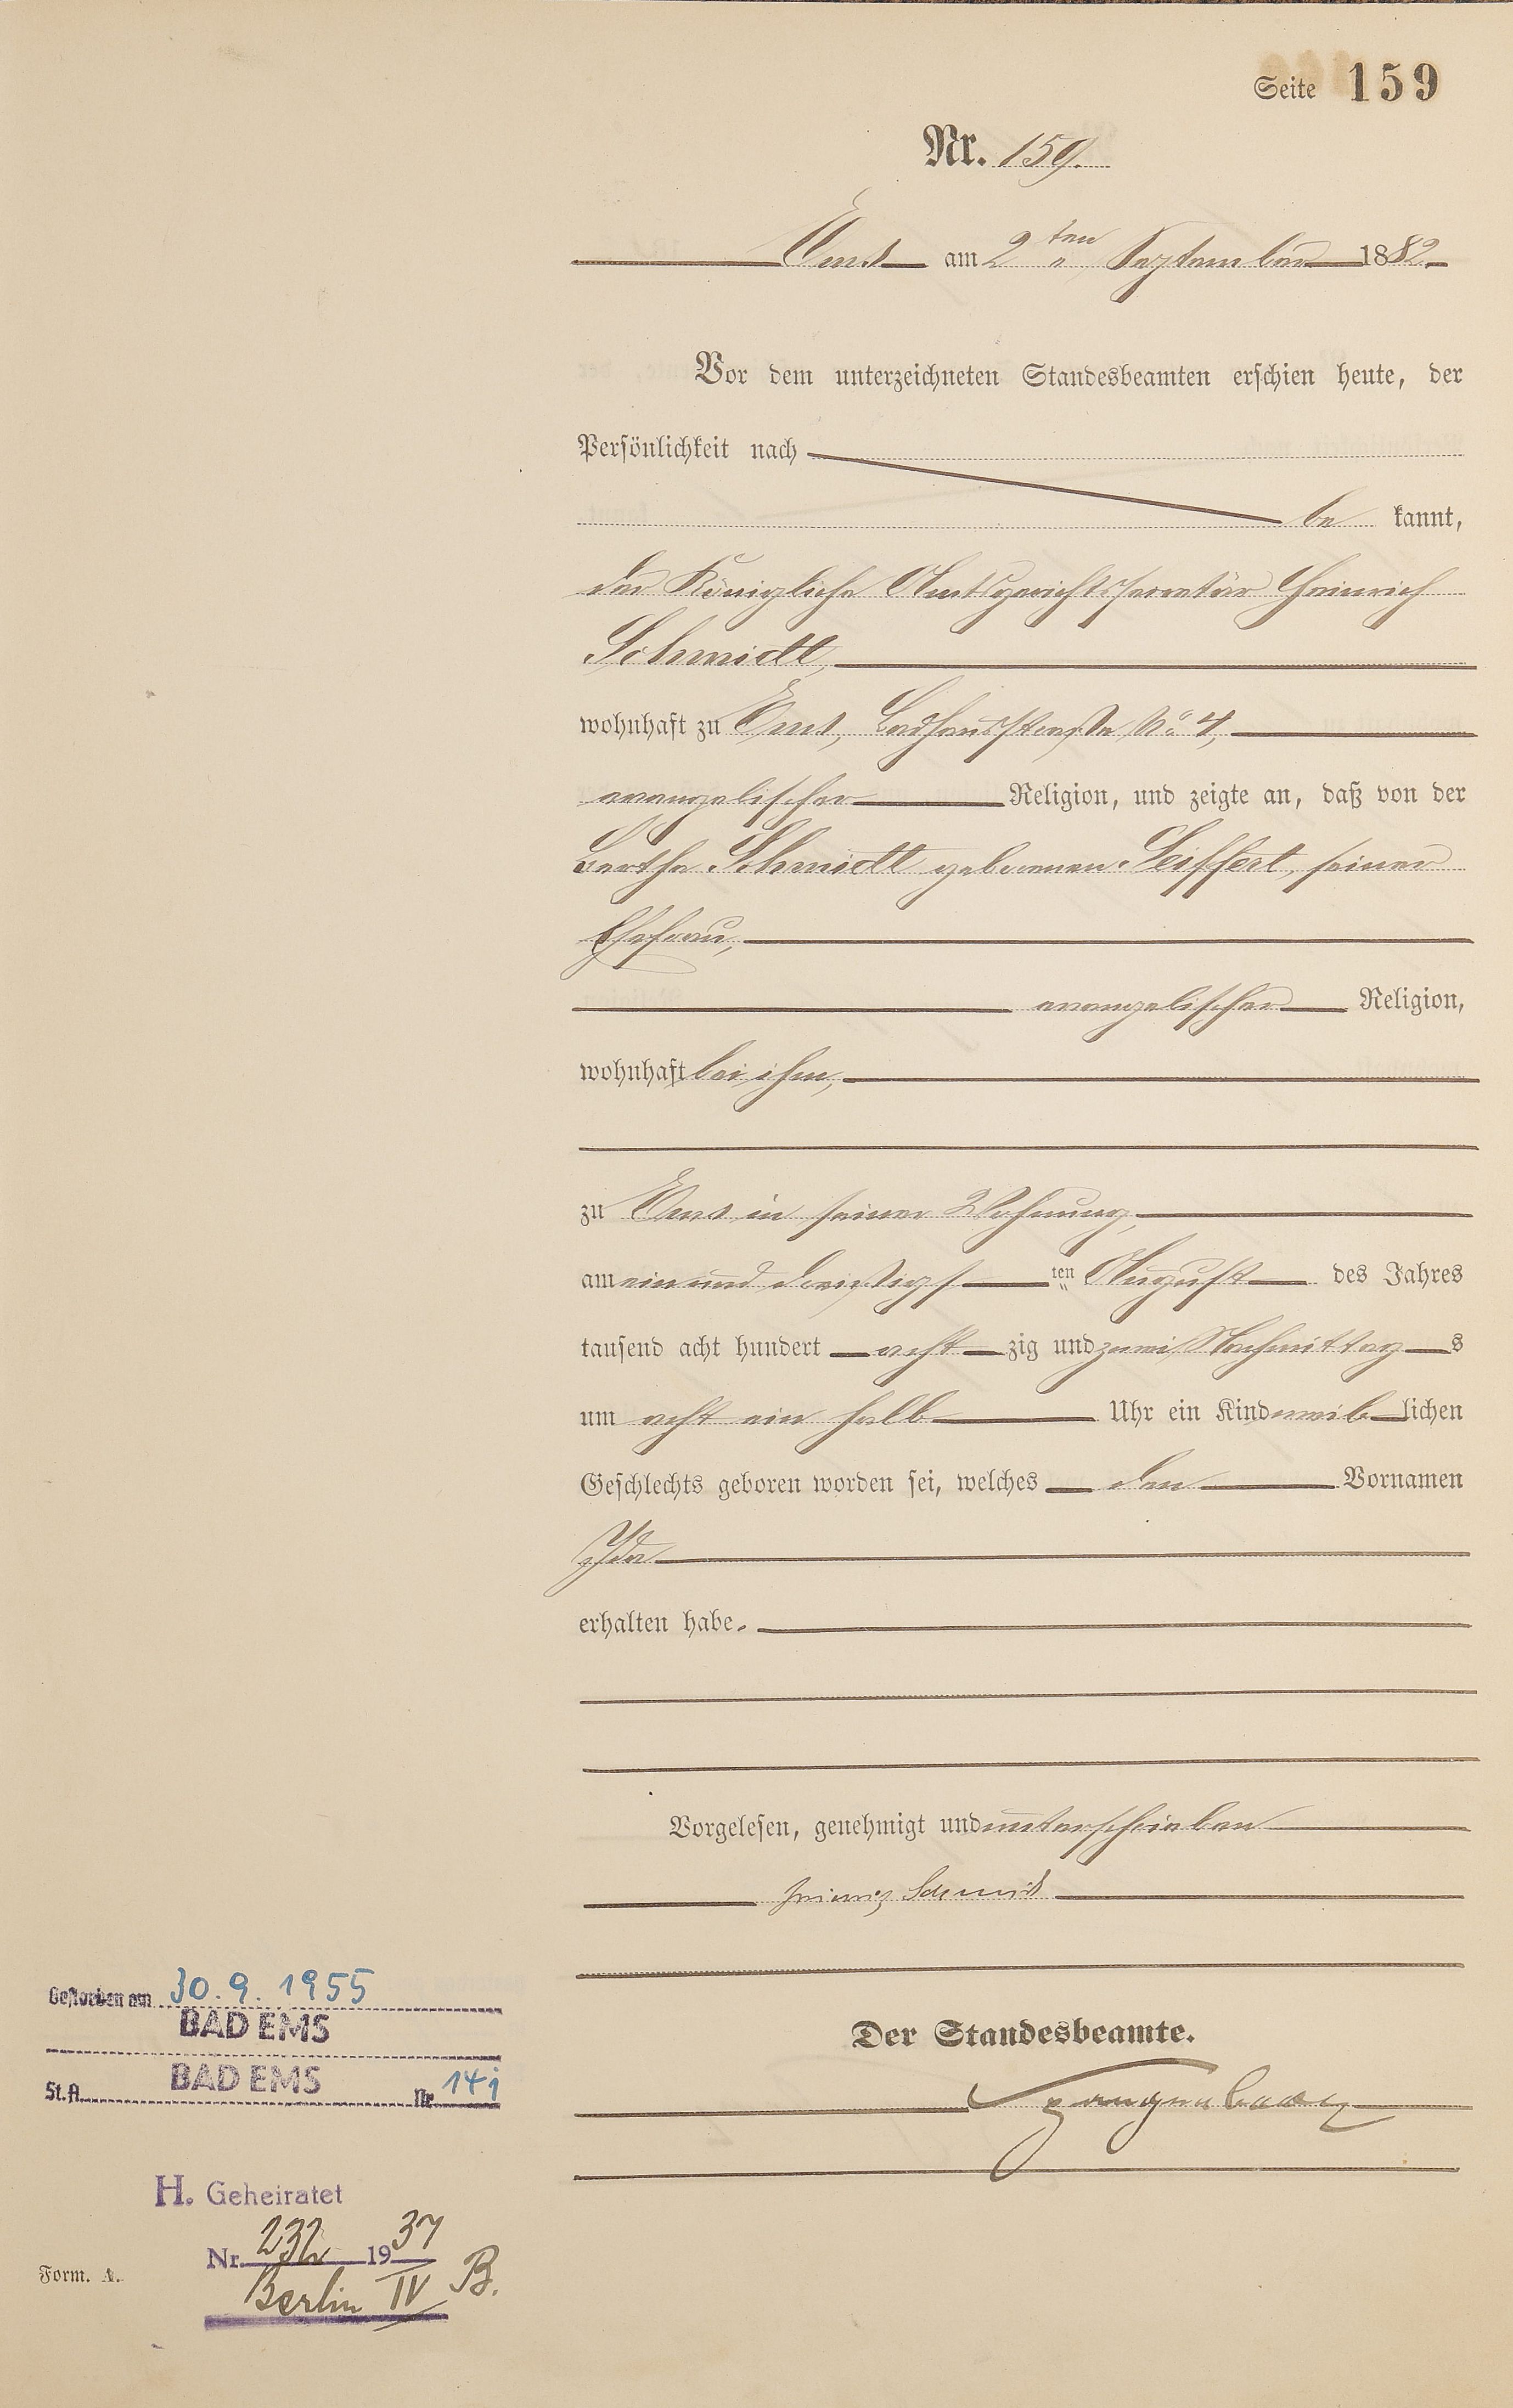 Seite 159
Nr. 159.
Ems am 2ten September 1882.
Vor dem unterzeichneten Standesbeamten erschien heute, der
Persönlichkeit nach
be kannt,
der Königliche Amtsgerichtssecretär Heinrich
Schmidt,
wohnhaft zu Ems, Badhausstraße No 4,
evangelischer Religion, und zeigte an, daß von der
Bertha Schmidt geborenen Seiffert, seiner
Ehefrau,
evangelischer Religion,
wohnhaft bei ihm,
zu Ems in seiner Wohnung,
am ein und dreißigsten August des Jahres
tausend acht hundert acht zig und zwei Nachmittags
um acht ein halb Uhr ein Kind weiblichen
Geschlechts geboren worden sei, welches den Vornamen
Ida
erhalten habe.
Vorgelesen, genehmigt und unterschrieben
Heinrich Schmidt
Der Standesbeamte.
Gestorben am 30.9.1955
BAD EMS
St.A. BAD EMS Nr. 141
H. Geheiratet
Nr. 232 1937
Berlin IV B.
Form. A.